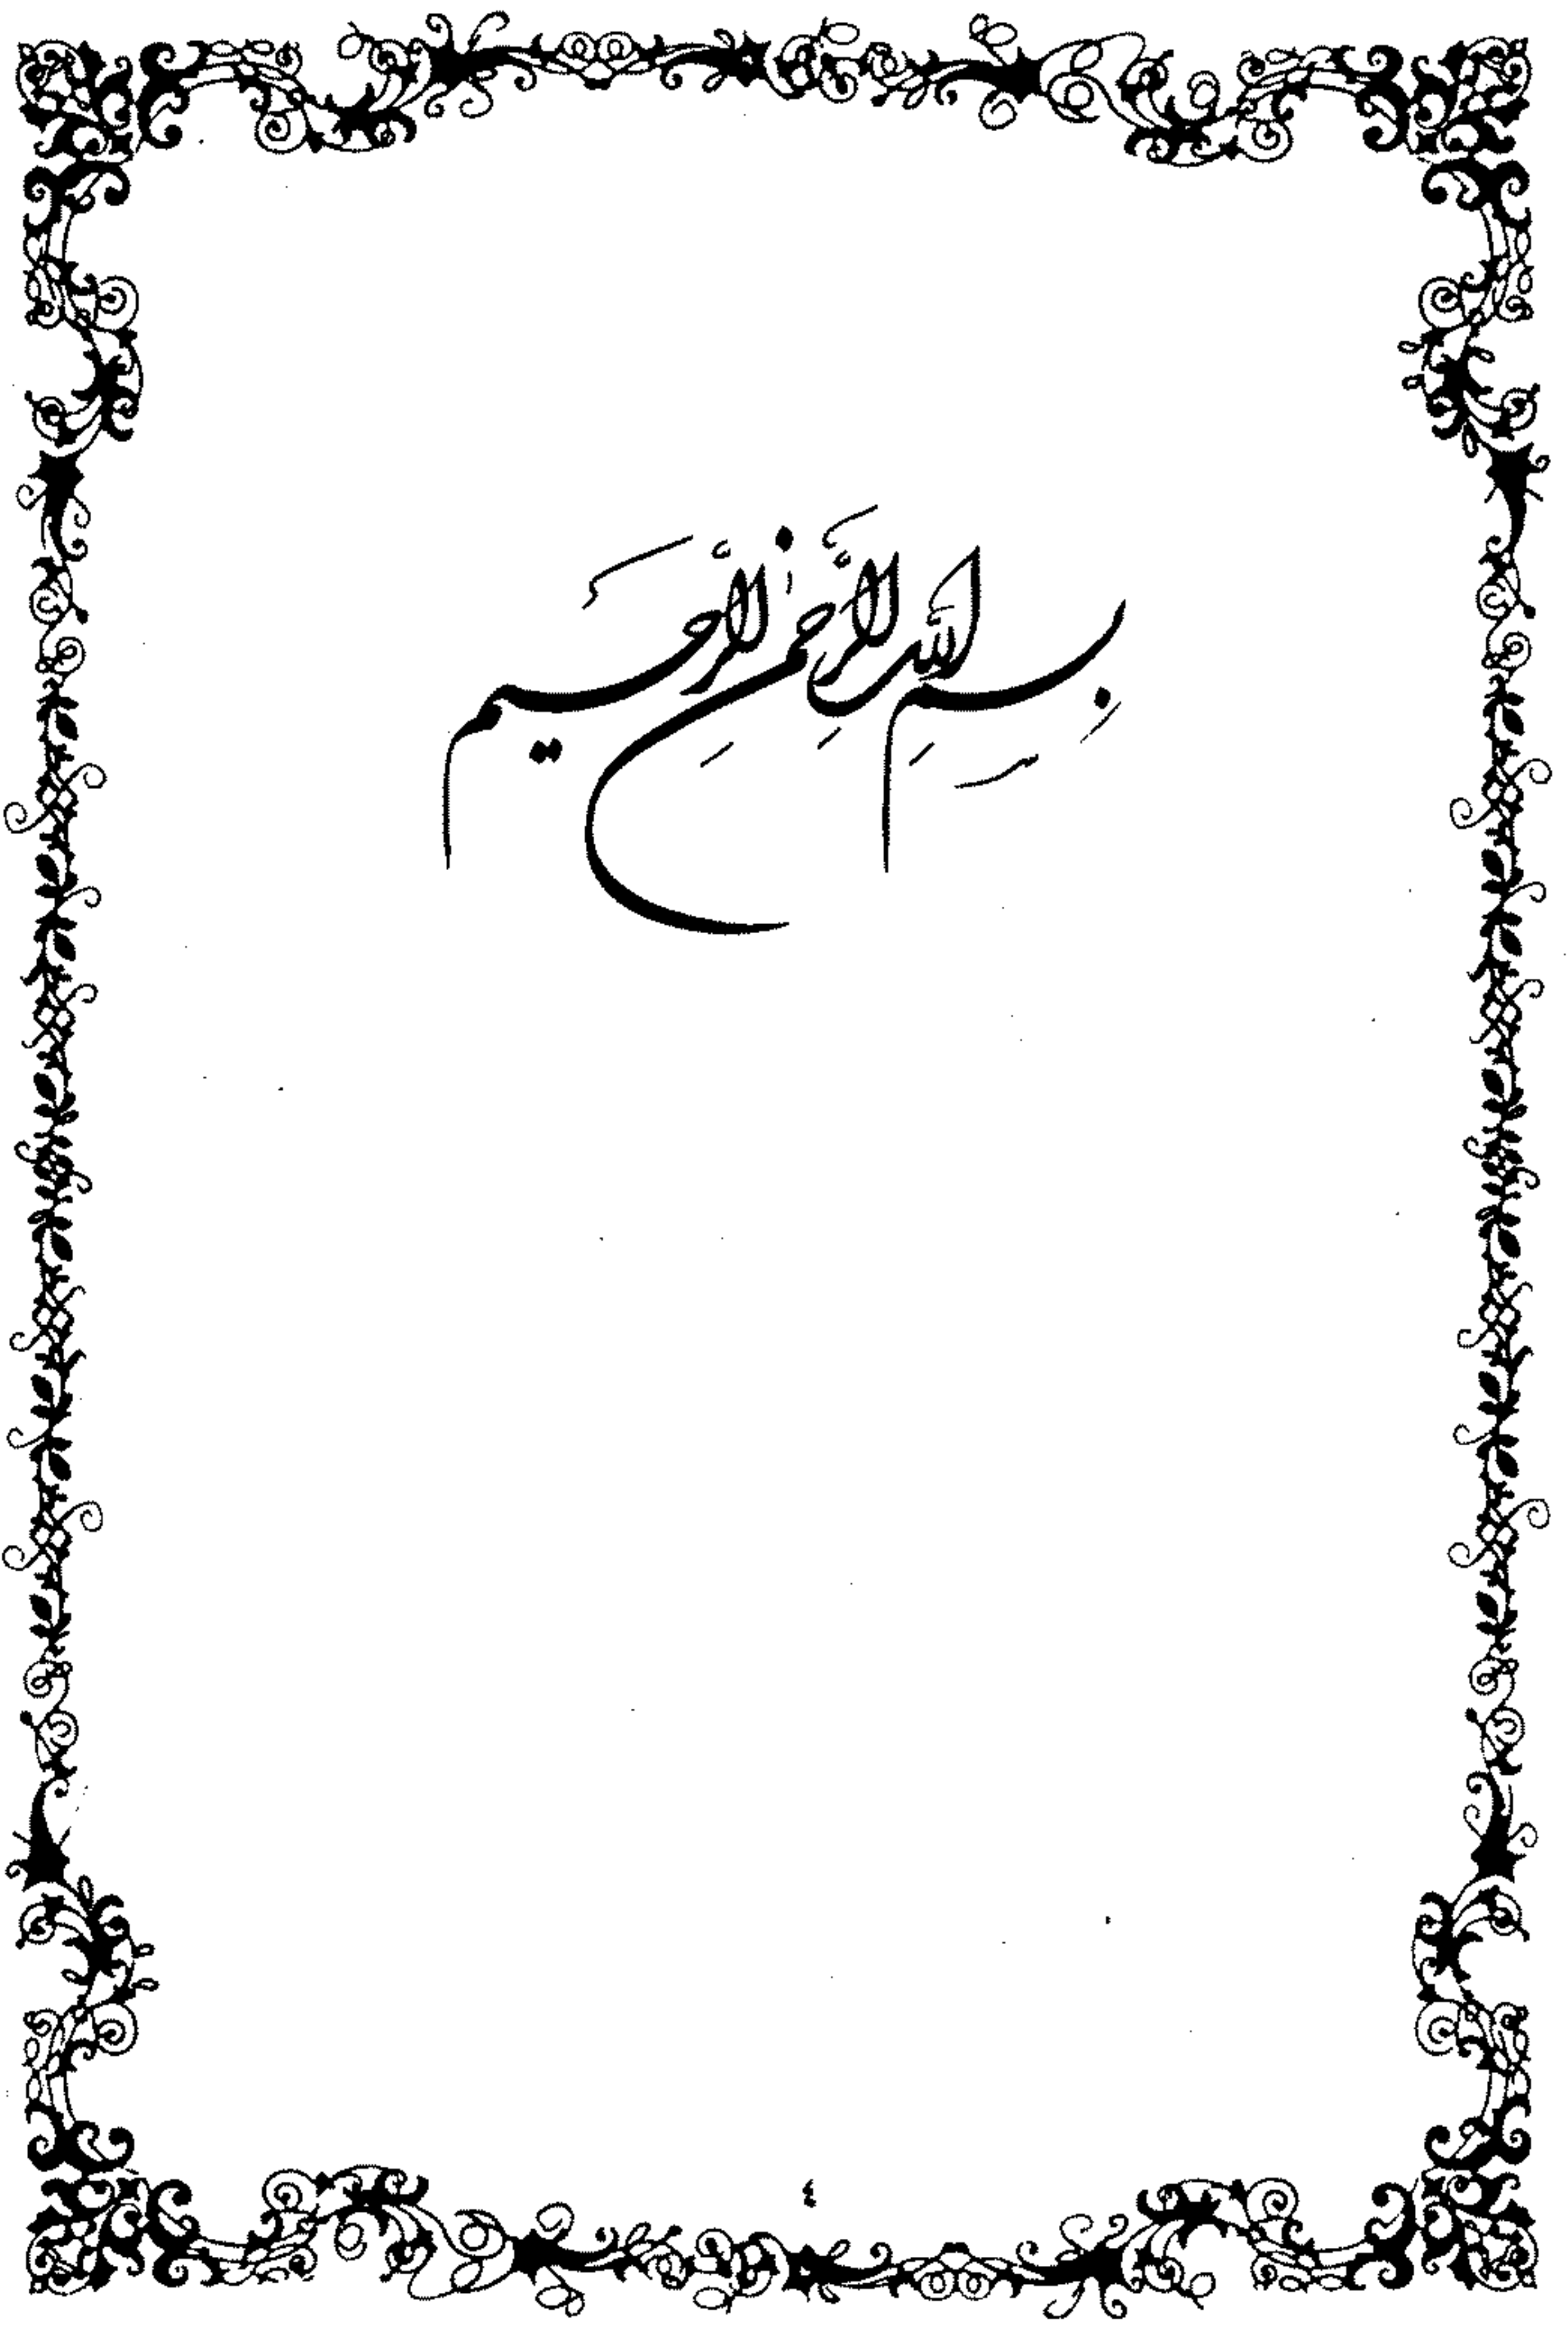 بسم الله الرحمن الرحيم
٤